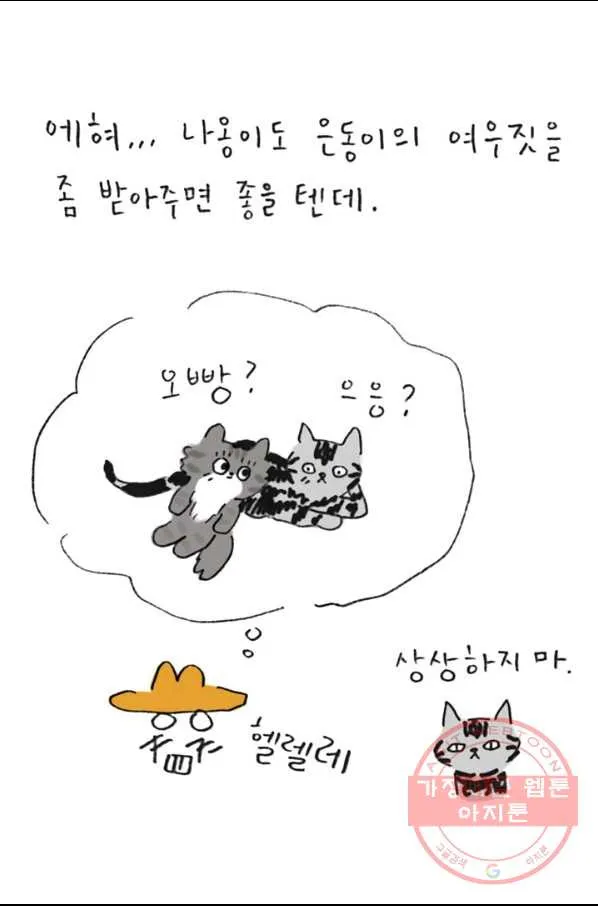 에혀... 나옹이도 은동이의 여우짓을
좀 받아주면 좋을 텐데.
오빵?
으응?
상상하지 마.
헬렐레
웹툰
아지툰
구글검색
아지툰